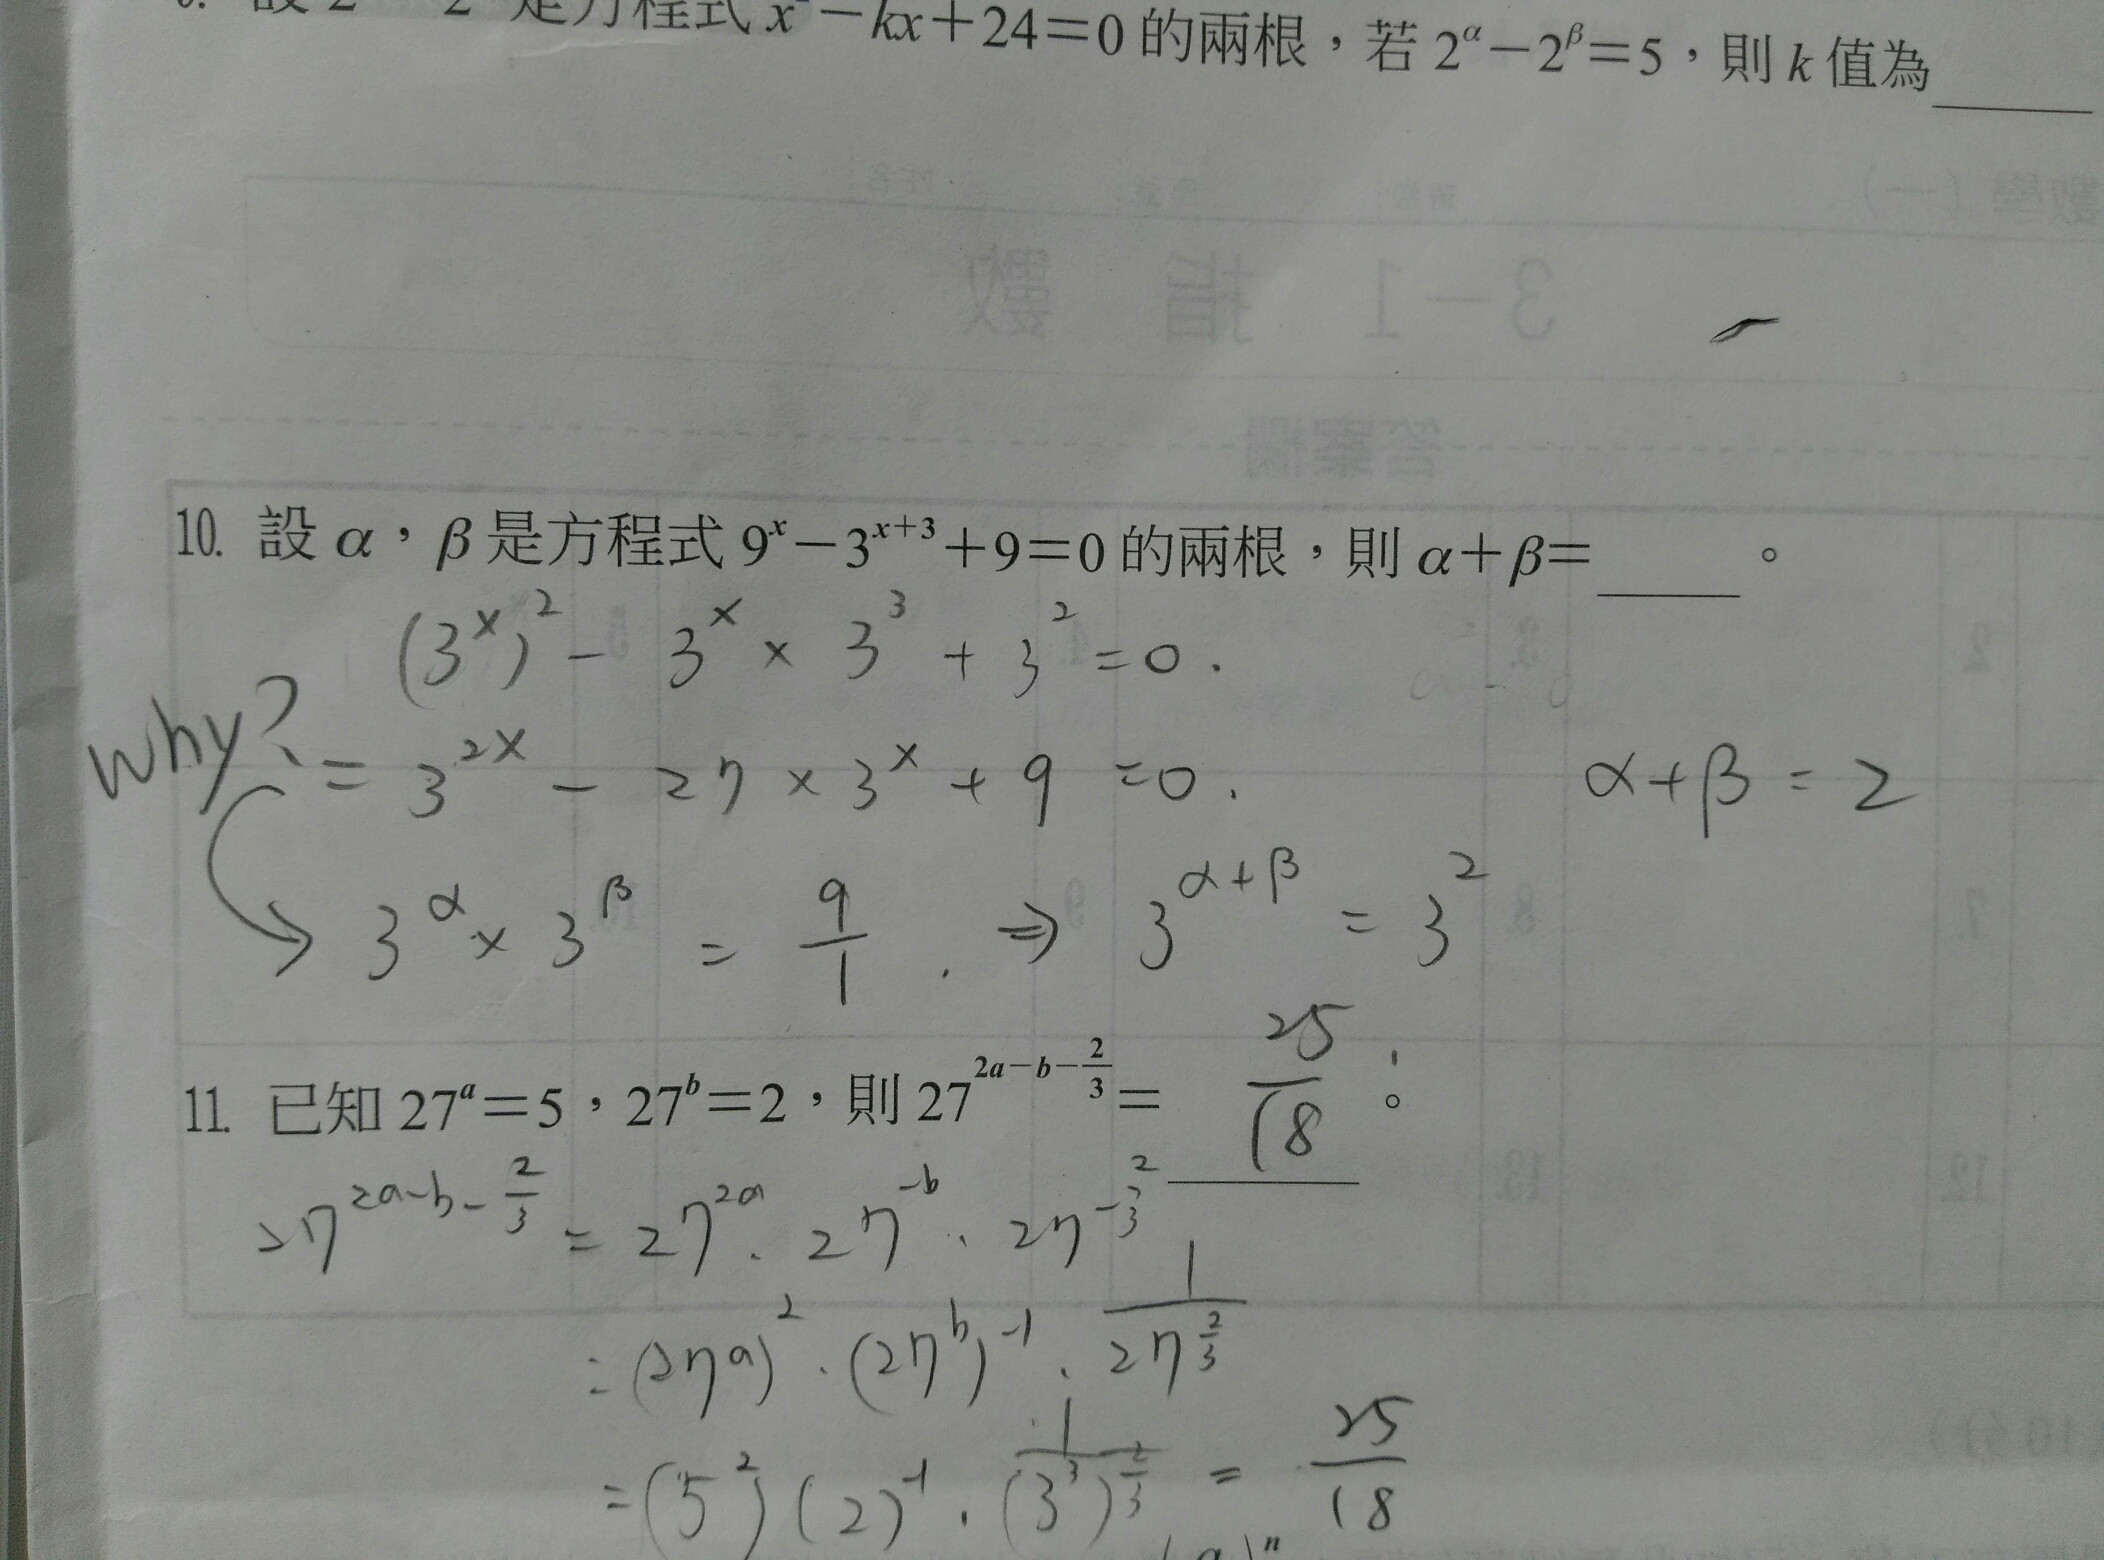 是方程式 x² − kx + 24 = 0 的兩根，若 2^α − 2^β = 5，則 k 值為____
10. 設 α，β 是方程式 9^x − 3^{x+3} + 9 = 0 的兩根，則 α + β = ____。
(3^x)^2 − 3^x × 3^3 + 3^2 = 0.
why?
= 3^{2x} − 27 × 3^x + 9 = 0.
α + β = 2
3^α × 3^β = 9/1. ⇒ 3^{α+β} = 3^2
11. 已知 27^a = 5，27^b = 2，則 27^{2a−b−2/3} = 25/18。
27^{2a−b−2/3} = 27^{2a} · 27^{−b} · 27^{−2/3}
= (27^a)^2 · (27^b)^{−1} · 1/27^{2/3}
= (5^2)(2)^{−1} · 1/(3^3)^{2/3} = 25/18